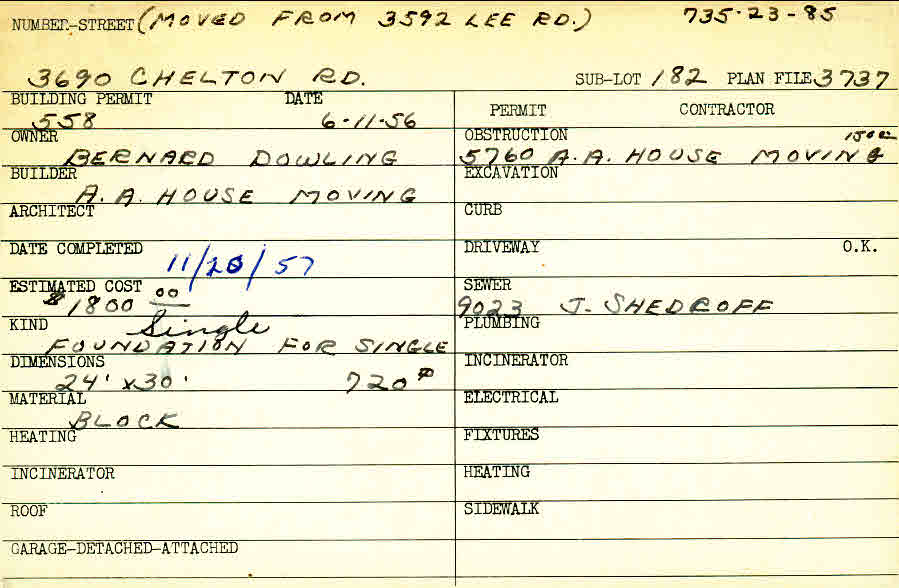 NUMBER-STREET (MOVED FROM 3592 LEE RD.) 735-23-85
3690 CHELTON RD. SUB-LOT 182 PLAN FILE 3737
BUILDING PERMIT DATE
558 6-11-56
OWNER
BERNARD DOWLING
BUILDER
A.A. HOUSE MOVING
ARCHITECT
DATE COMPLETED
11/20/57
ESTIMATED COST
$1800 00
KIND Single
FOUNDATION FOR SINGLE
DIMENSIONS
24' x 30' 720
MATERIAL
BLOCK
HEATING
INCINERATOR
ROOF
GARAGE-DETACHED-ATTACHED
PERMIT CONTRACTOR
OBSTRUCTION
5760 A.A. HOUSE MOVING
EXCAVATION
CURB
DRIVEWAY O.K.
SEWER
9023 J. SHEDROFF
PLUMBING
INCINERATOR
ELECTRICAL
FIXTURES
HEATING
SIDEWALK